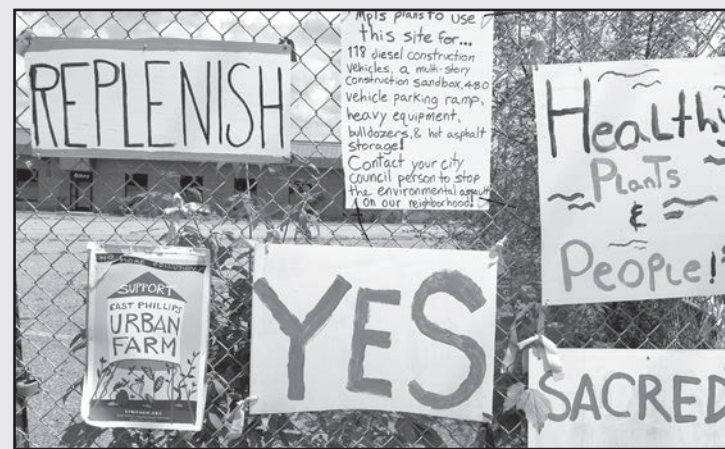 REPLENISH
Mpls plans to use
this site for...
118 diesel construction
vehicles, a multi-story
construction sandbox, 480
vehicle parking ramp,
heavy equipment,
bulldozers, & hot asphalt
storage!
Contact your city
council person to stop
the environmental assault
on our neighborhood!
Healthy
Plants
&
People!
NO MORE POLLUTION
SUPPORT
EAST PHILLIPS
URBAN
FARM
YES
SACRED